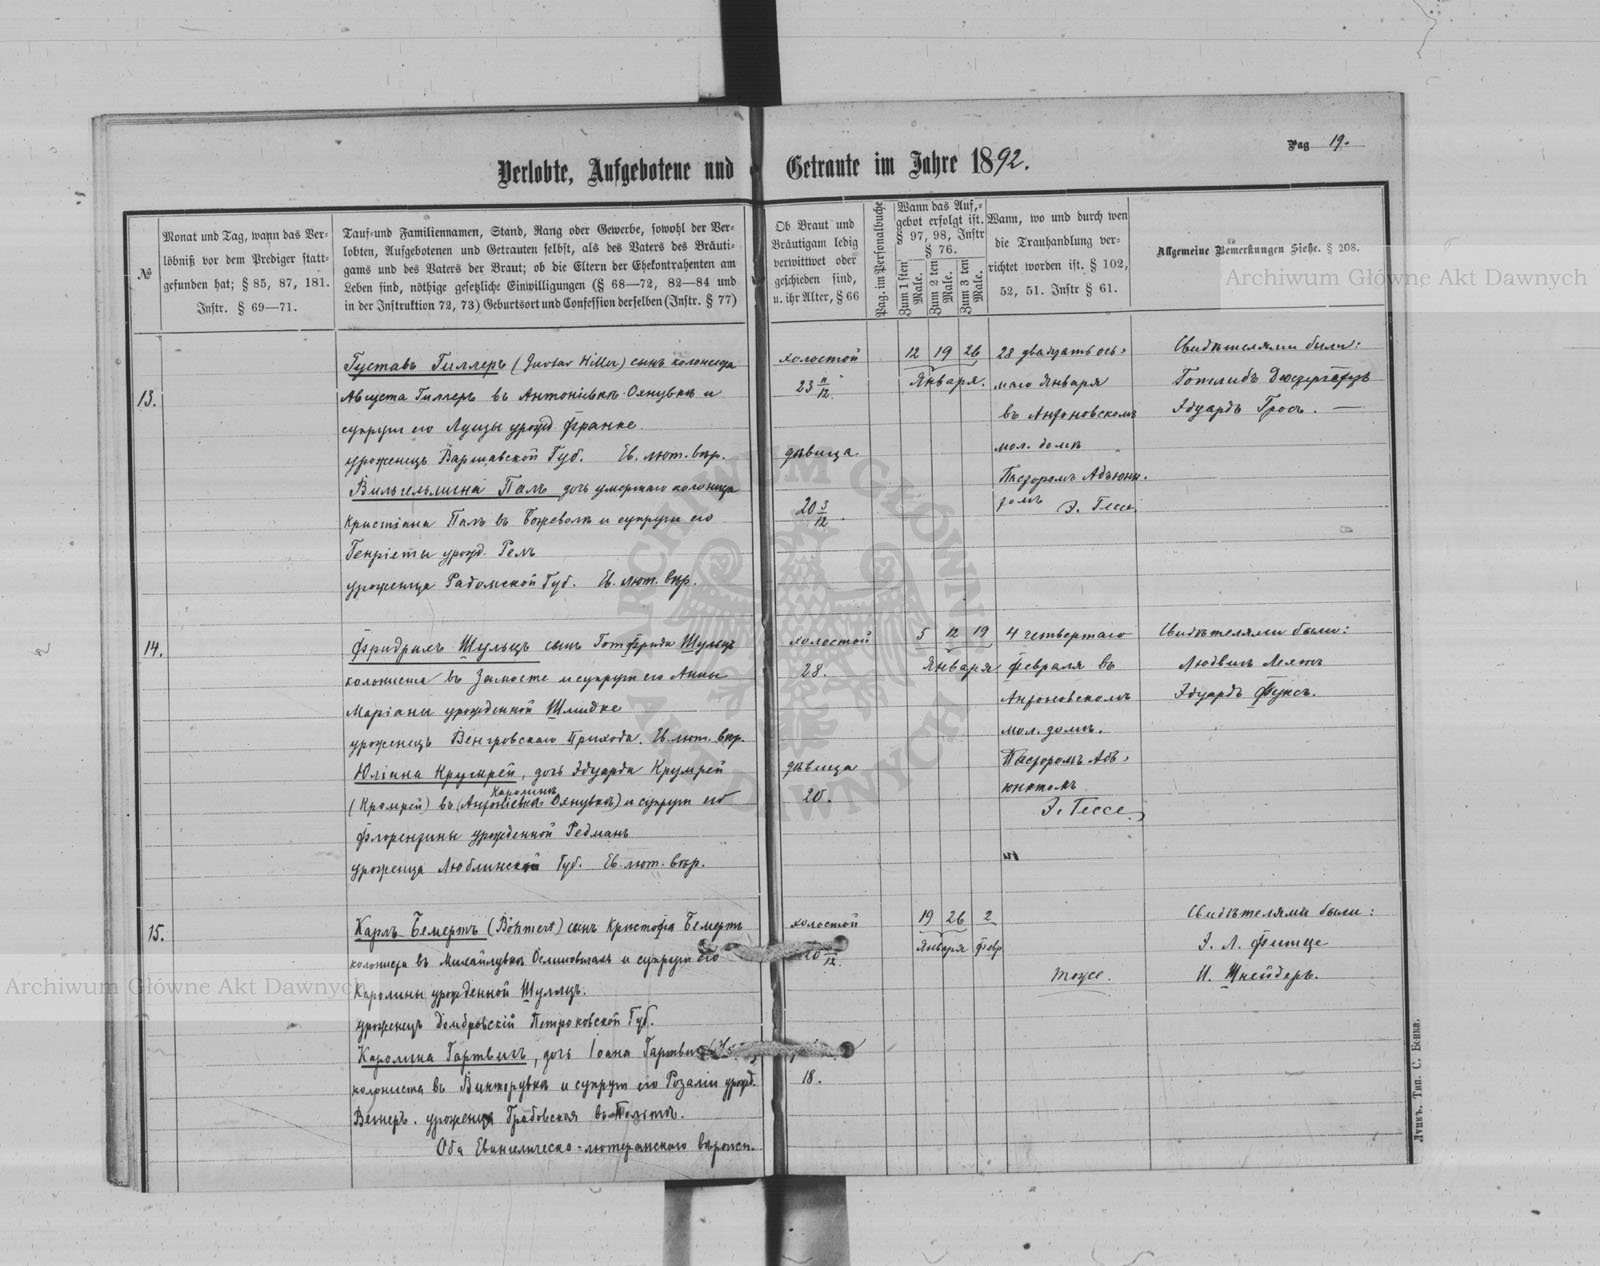 Pag 19.
Verlobte, Aufgebotene und Getraute im Jahre 1892.
№
Monat und Tag, wann das Ver-
löbniß vor dem Prediger statt-
gefunden hat; § 85, 87, 181.
Instr. § 69—71.
Tauf-und Familiennamen, Stand, Rang oder Gewerbe, sowohl der Ver-
lobten, Aufgebotenen und Getrauten selbst, als des Vaters des Bräuti-
gams und des Vaters der Braut; ob die Eltern der Ehekontrahenten am
Leben sind, nöthige gesetzliche Einwilligungen (§ 68—72, 82—84 und
in der Instruktion 72, 73) Geburtsort und Confession derselben (Instr. § 77)
Ob Braut und
Bräutigam ledig
verwittwet oder
geschieden sind,
u. ihr Alter, § 66
Pag. im Personalbuche
Wann das Auf-
gebot erfolgt ist.
§ 97, 98, Instr
§ 76.
Zum 1 sten Male.
Zum 2 ten Male.
Zum 3 ten Male.
Wann, wo und durch wen
die Trauhandlung ver-
richtet worden ist. § 102,
52, 51. Instr § 61.
Allgemeine Bemerkungen Siehe. § 208.
13.
Густавъ Гиллеръ (Gustav Hiller) сынъ колониста
Августа Гиллеръ въ Антонiевкѣ Охнувкѣ и
супруги его Луизы урожд. Франке
уроженецъ Варшавской Губ. Ев. лют. вѣр.
Вильгельмина Паль дочь умершаго колониста
Христiана Паль въ и супруги его
Генрiеты урожд. Рель
уроженица Радомской Губ. Ев. лют. вѣр.
холостой
23 /12
дѣвица
20 3/12.
12 19 26
Января.
28 двадцать ось-
маго Января
въ Антоновскомъ
мол. домѣ
Пасторомъ Адъюнк-
томъ Э. Гессе
Свидѣтелями были:
Готлибъ
Эдуардъ Гросъ. —
14.
Фридрихъ Шульцъ сынъ Готфрида Шульцъ
колониста въ Замосте и супруги его Анны
Марiаны урожденной Шмидке
уроженецъ Венгровскаго Прихода. Ев. лют. вѣр.
Юлiана Крумрей, дочь Эдуарда Крумрей
Каролинѣ
(Кромрей) въ (Антонiевкѣ Охнувкѣ) и супруги его
Флорентины урожденной Редманъ
уроженица Люблинской Губ. Ев. лют. вѣр.
холостой
28.
дѣвица
20.
5 12 19
Января
4 четвертаго
Февраля въ
Антоновскомъ
мол. домѣ.
Пасторомъ Адъ-
юнктомъ
Э. Гессе
Свидѣтелями были:
Людвигъ
Эдуардъ Фуксъ.
15.
Карлъ Бемертъ (Böhmert) сынъ Христофа Бемертъ
колониста въ Михайлувкѣ и супруги его
Каролины урожденной Шульцъ.
уроженецъ Домбровскiй Петроковской Губ.
Каролина Гартвигъ, дочь Iоана
колониста въ Викторувкѣ и супруги его Розалiи урожд.
Вегнеръ. уроженица Грабовская въ
Оба Евангелическо-лютеранскаго вѣроисп.
холостой
20 /12
18.
19 26 2
Января Февр
тоже.
Свидѣтелями были:
Э. Л. Фитце
И. Шнейдеръ.
Луцкъ. Тип. С. Бонка.
Archiwum Główne Akt Dawnych
Archiwum Główne Akt Dawnych
ARCHIWUM GŁÓWNE AKT DAWNYCH